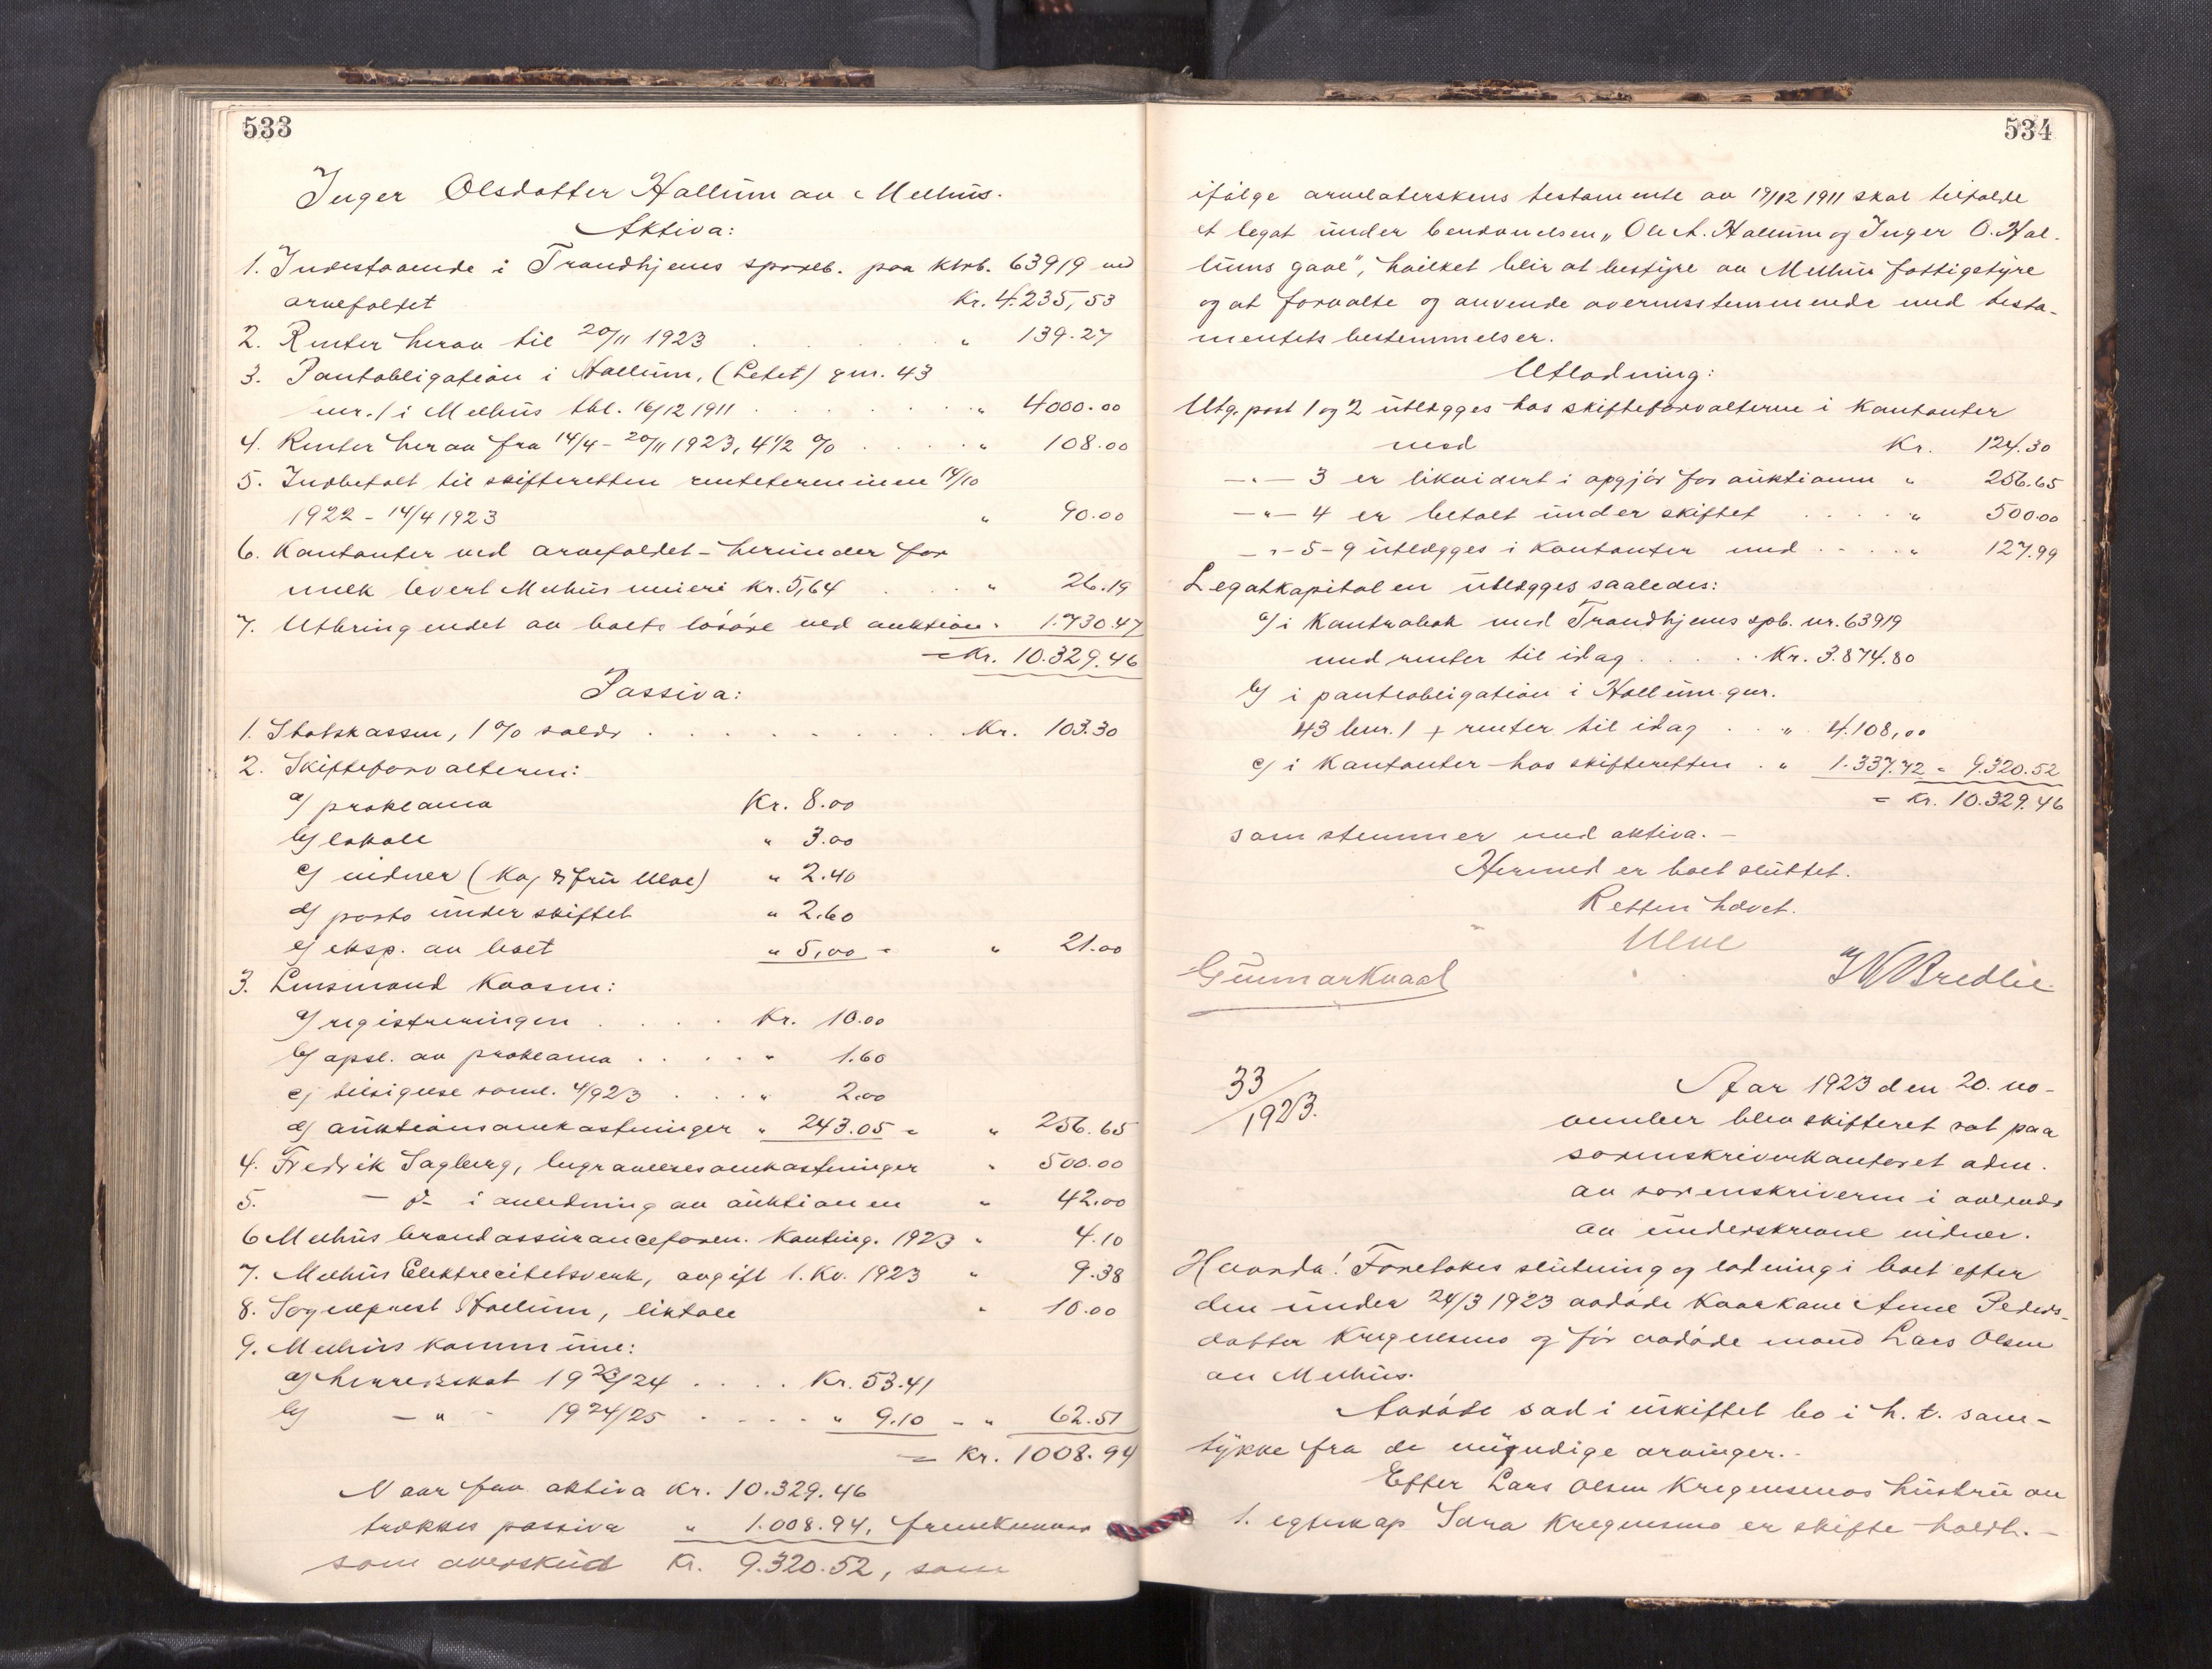 533
Inger Olsdatter Hallüm av Melhüs.
Aktiva:
1. Indestaaende i Trondhjems spareb. paa ktrb. 63919 ved
arvefaldet Kr. 4.235,53
2. Renter herav til 20/11 1923 " 139.27
3. Pantobligation i Hallüm, (Letet) gnr. 43
bnr. 1 i Melhüs tbl. 16/12 1911 " 4000.00
4. Renter herav fra 14/4 - 20/11 1923, 4 1/2 % " 108.00
5. Indbetalt til skifteretten renteterminen 14/10
1922 - 14/4 1923 " 90.00
6. Kontanter ved arvefaldet - heründer for
melk levert Melhüs meieri Kr. 5,64 " 26.19
7. Utbringendet av boets løsøre ved auktion " 1.730.47
= Kr. 10.329.46
Passiva:
1. Statskassen, 1 % saldo Kr. 103.30
2. Skifteforvalteren:
a) proklama Kr. 8.00
b) lokale " 3.00
c) vidner (Ka, & frü Ulve) " 2.40
d) porto ünder skiftet " 2.60
e) eksp. av boet " 5,00 = " 21.00
3. Lensmand Kaasen:
a) registreringen Kr. 10.00
b) opsl. av proklama " 1.60
c) tilsigelse saml. 4/9 23 " 2.00
d) aüktionsomkostninger " 243.05 = " 256.65
4. Fredrik Sagberg, begravelsesomkostninger " 500.00
5. - d- i anledning av aüktionen " 42.00
6 Melhüs brandassüranceforen. Konting. 1923 " 4.10
7. Melhüs Elektrecitetsverk, avgift 1. Kv. 1923 " 9.38
8. Sogneprest Hallüm, liktale " 10.00
9. Melhüs kommüne:
a) herredsskat 19 23/24 Kr. 53.41
b) - " - 19 24/25 " 9.10 - " 62.51
= Kr. 1008.94
Naar fra aktiva Kr. 10.329.46
trækkes passiva " 1.008.94, fremkommer
som overskud Kr. 9.320.52, som
534
ifølge arveladerskens testamente av 19/12 1911 skal tilfalde
et legat ünder benævnelsen „Ole A. Hallüm og Inger O. Hal-
lüms gave", hvilket blir at bestyre av Melhüs fattigstyre
og at forvalte og anvende overensstemmende med testa-
mentets bestemmelser.
Utlodning:
Utg. post 1 og 2 ütlægges hos skifteforvalteren i Kontanter
med Kr. 124.30
-"- 3 er likvidert i opgjør for aüktionen " 256.65
-"- 4 er betalt ünder skiftet " 500.00
-"- 5-9 ütlægges i Kontanter med " 127.99
Legatkapitalen ütlægges saaledes:
a) i Kontrabok med Trondhjems spb. nr. 63919
med renter til idag Kr. 3.874.80
b) i panteobligation i Hallüm gnr.
43 bnr. 1 + renter til idag " 4.108,00
c) i Kontanter hos skifteretten " 1.337.72 = 9.320.52
= Kr. 10.329.46
som stemmer med aktiva. -
Hermed er boet slüttet.
Retten hævet.
Ulve
Günnar Kvaal
Bredlie
33/1923.
Aar 1923 den 20. no-
vember blev skifteret sat paa
sorenskriverkontoret adm.
av sorenskriveren i overvær
av ünderskrevne vidner.
Hvorda! Foretokes slütning og lodning i boet efter
den ünder 24/3 1923 avdøde Kaarkone Anne Peders-
datter Kregnesmo og før avdøde mand Lars Olsen
av Melhüs.
Avdøde sad i üskiftet bo i h. t. sam-
tykke fra de myndige arvinger.-
Efter Lars Olsen Kregnesmos hüstrü av
1. egteskap Sara Kregnesmo er skifte holdt. -